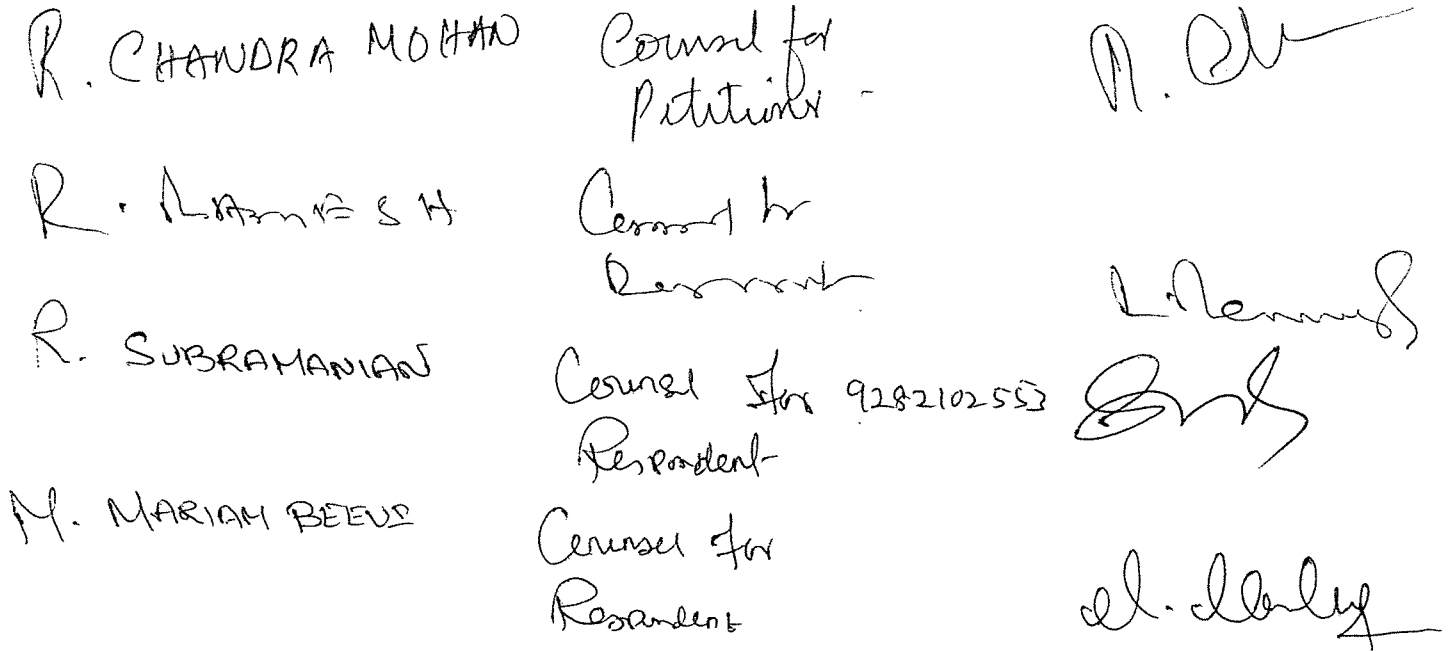 R. CHANDRA MOHAN Counsel for
Petitioner -
R. RAMESH Counsel for
Respondent
R. SUBRAMANIAN
Counsel For 9282102553
Respondent
M. MARIAM BEEVI
Counsel For
Respondent